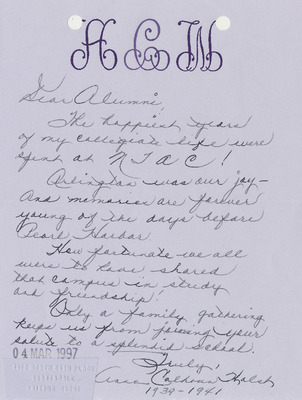 ACW
Dear Alumni,
The happiest years
of my collegiate life were
spent at NTAC!
Arlington was our joy -
and memories are forever
young of the days before
Pearl Harbor.
How fortunate we all
were to have shared
that campus in study
and friendship!
Only a family gathering
keeps us from joining your
salute to a splendid school.
Truly,
Calhoun
1939-1941
04 MAR 1997